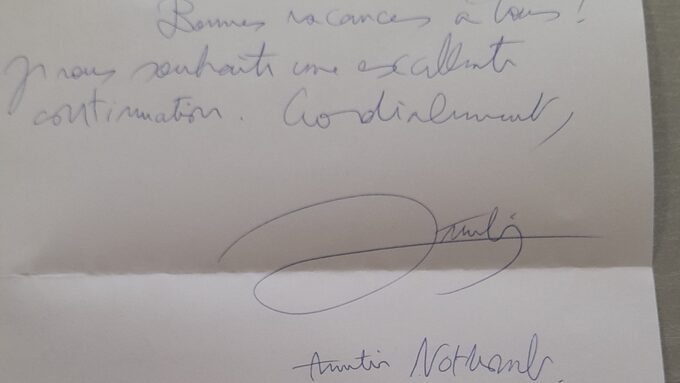 Bonnes vacances à tous !
Je vous souhaite une excellente
continuation. Cordialement,
Nothomb.